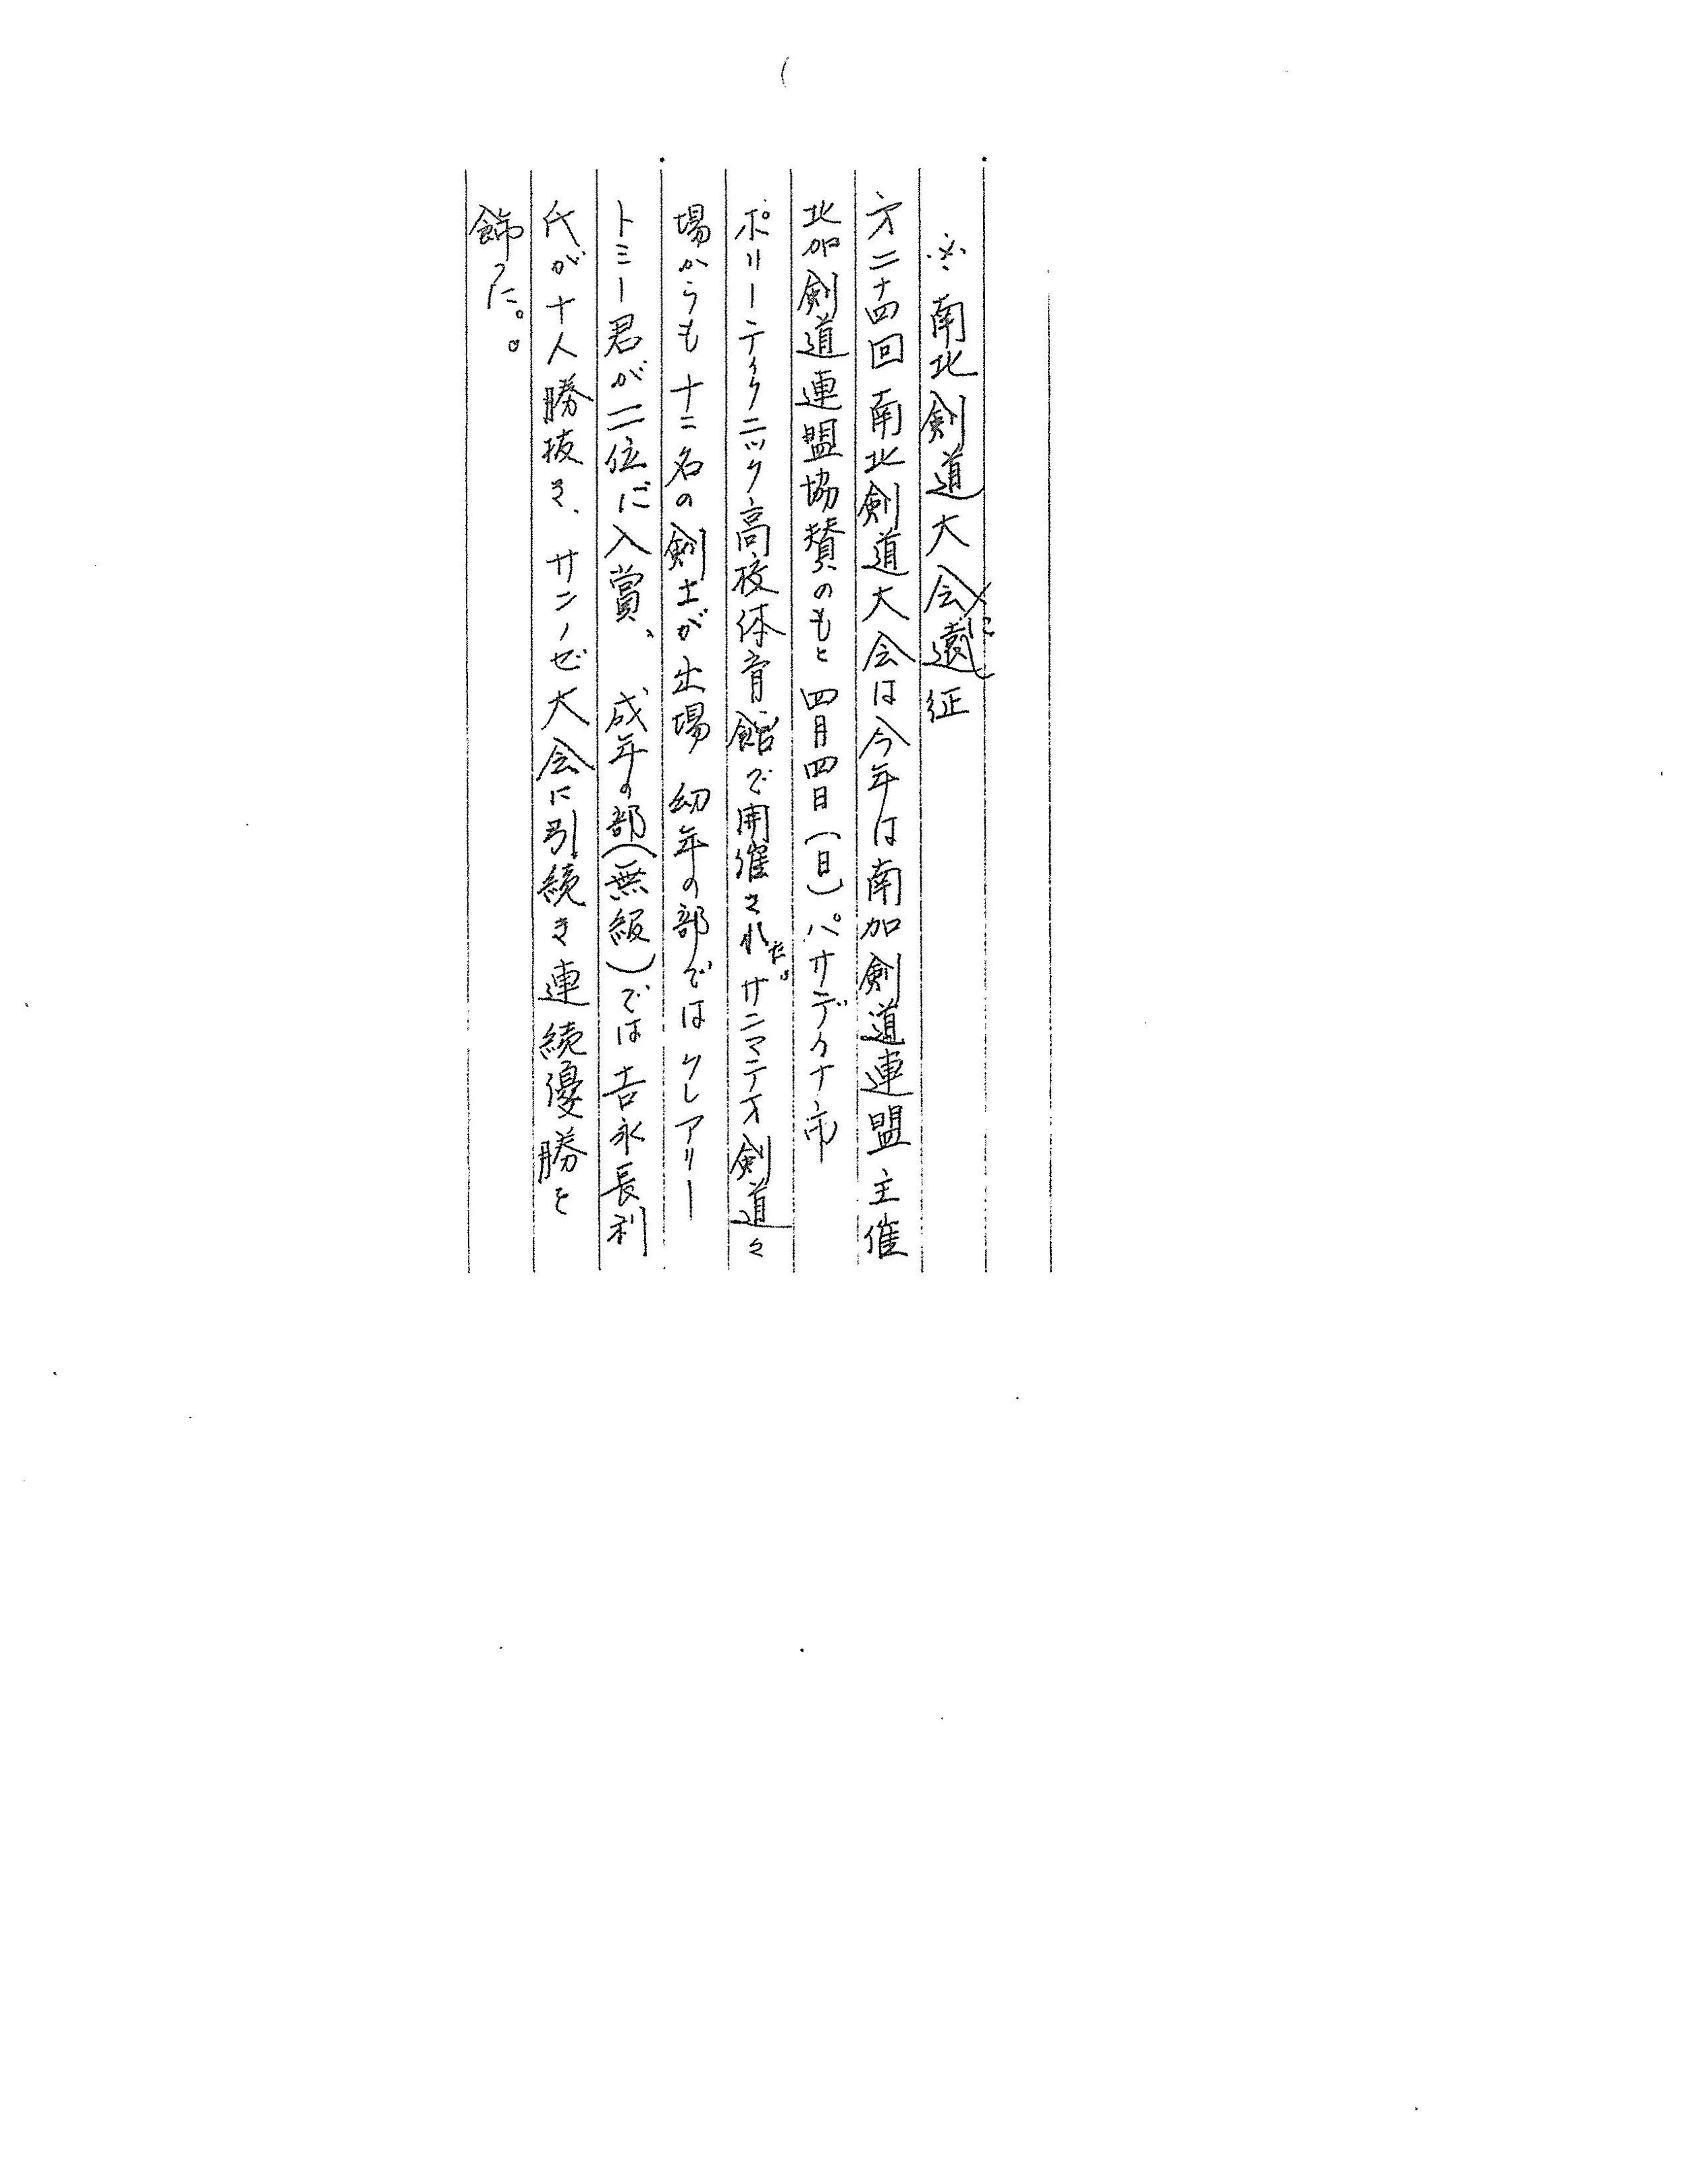 ※南北剣道大会に遠征
才二十四回南北剣道大会は今年は南加剣道連盟主催
北加剣道連盟協賛のもと四月四日(日)パサデナ市
ポリーティクニック高校体育館で開催された。サンマテオ剣道々
場からも十二名の剣士が出場 幼年の部ではクレアリー
トミー君が二位に入賞、成年の部(無級)では吉永長利
氏が十人勝抜き、サンノゼ大会に引続き連続優勝を
飾った。